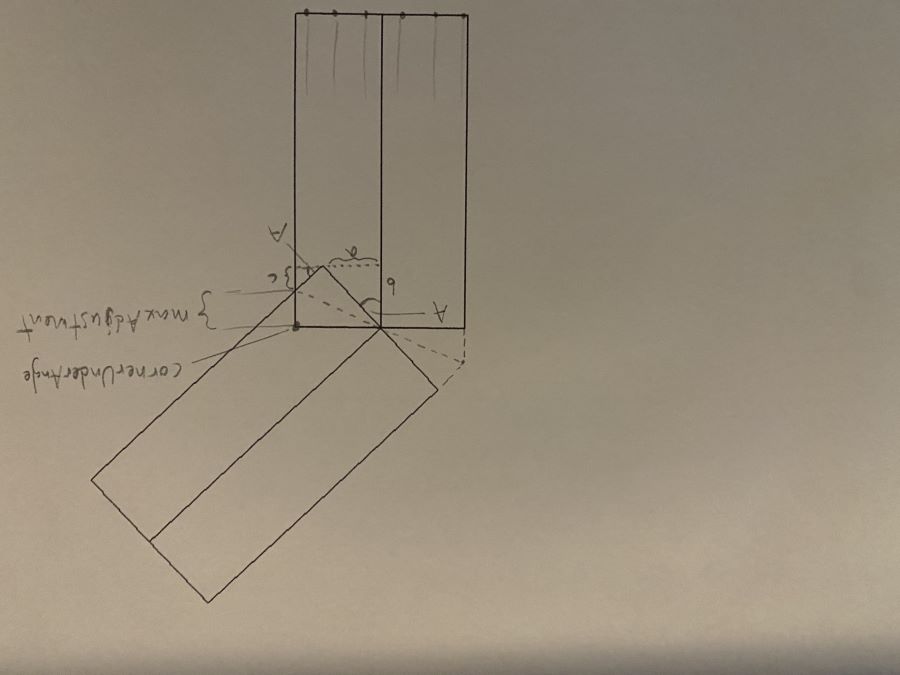 cornerUnderAngle
maxAdjustment
A
b
c
a
A